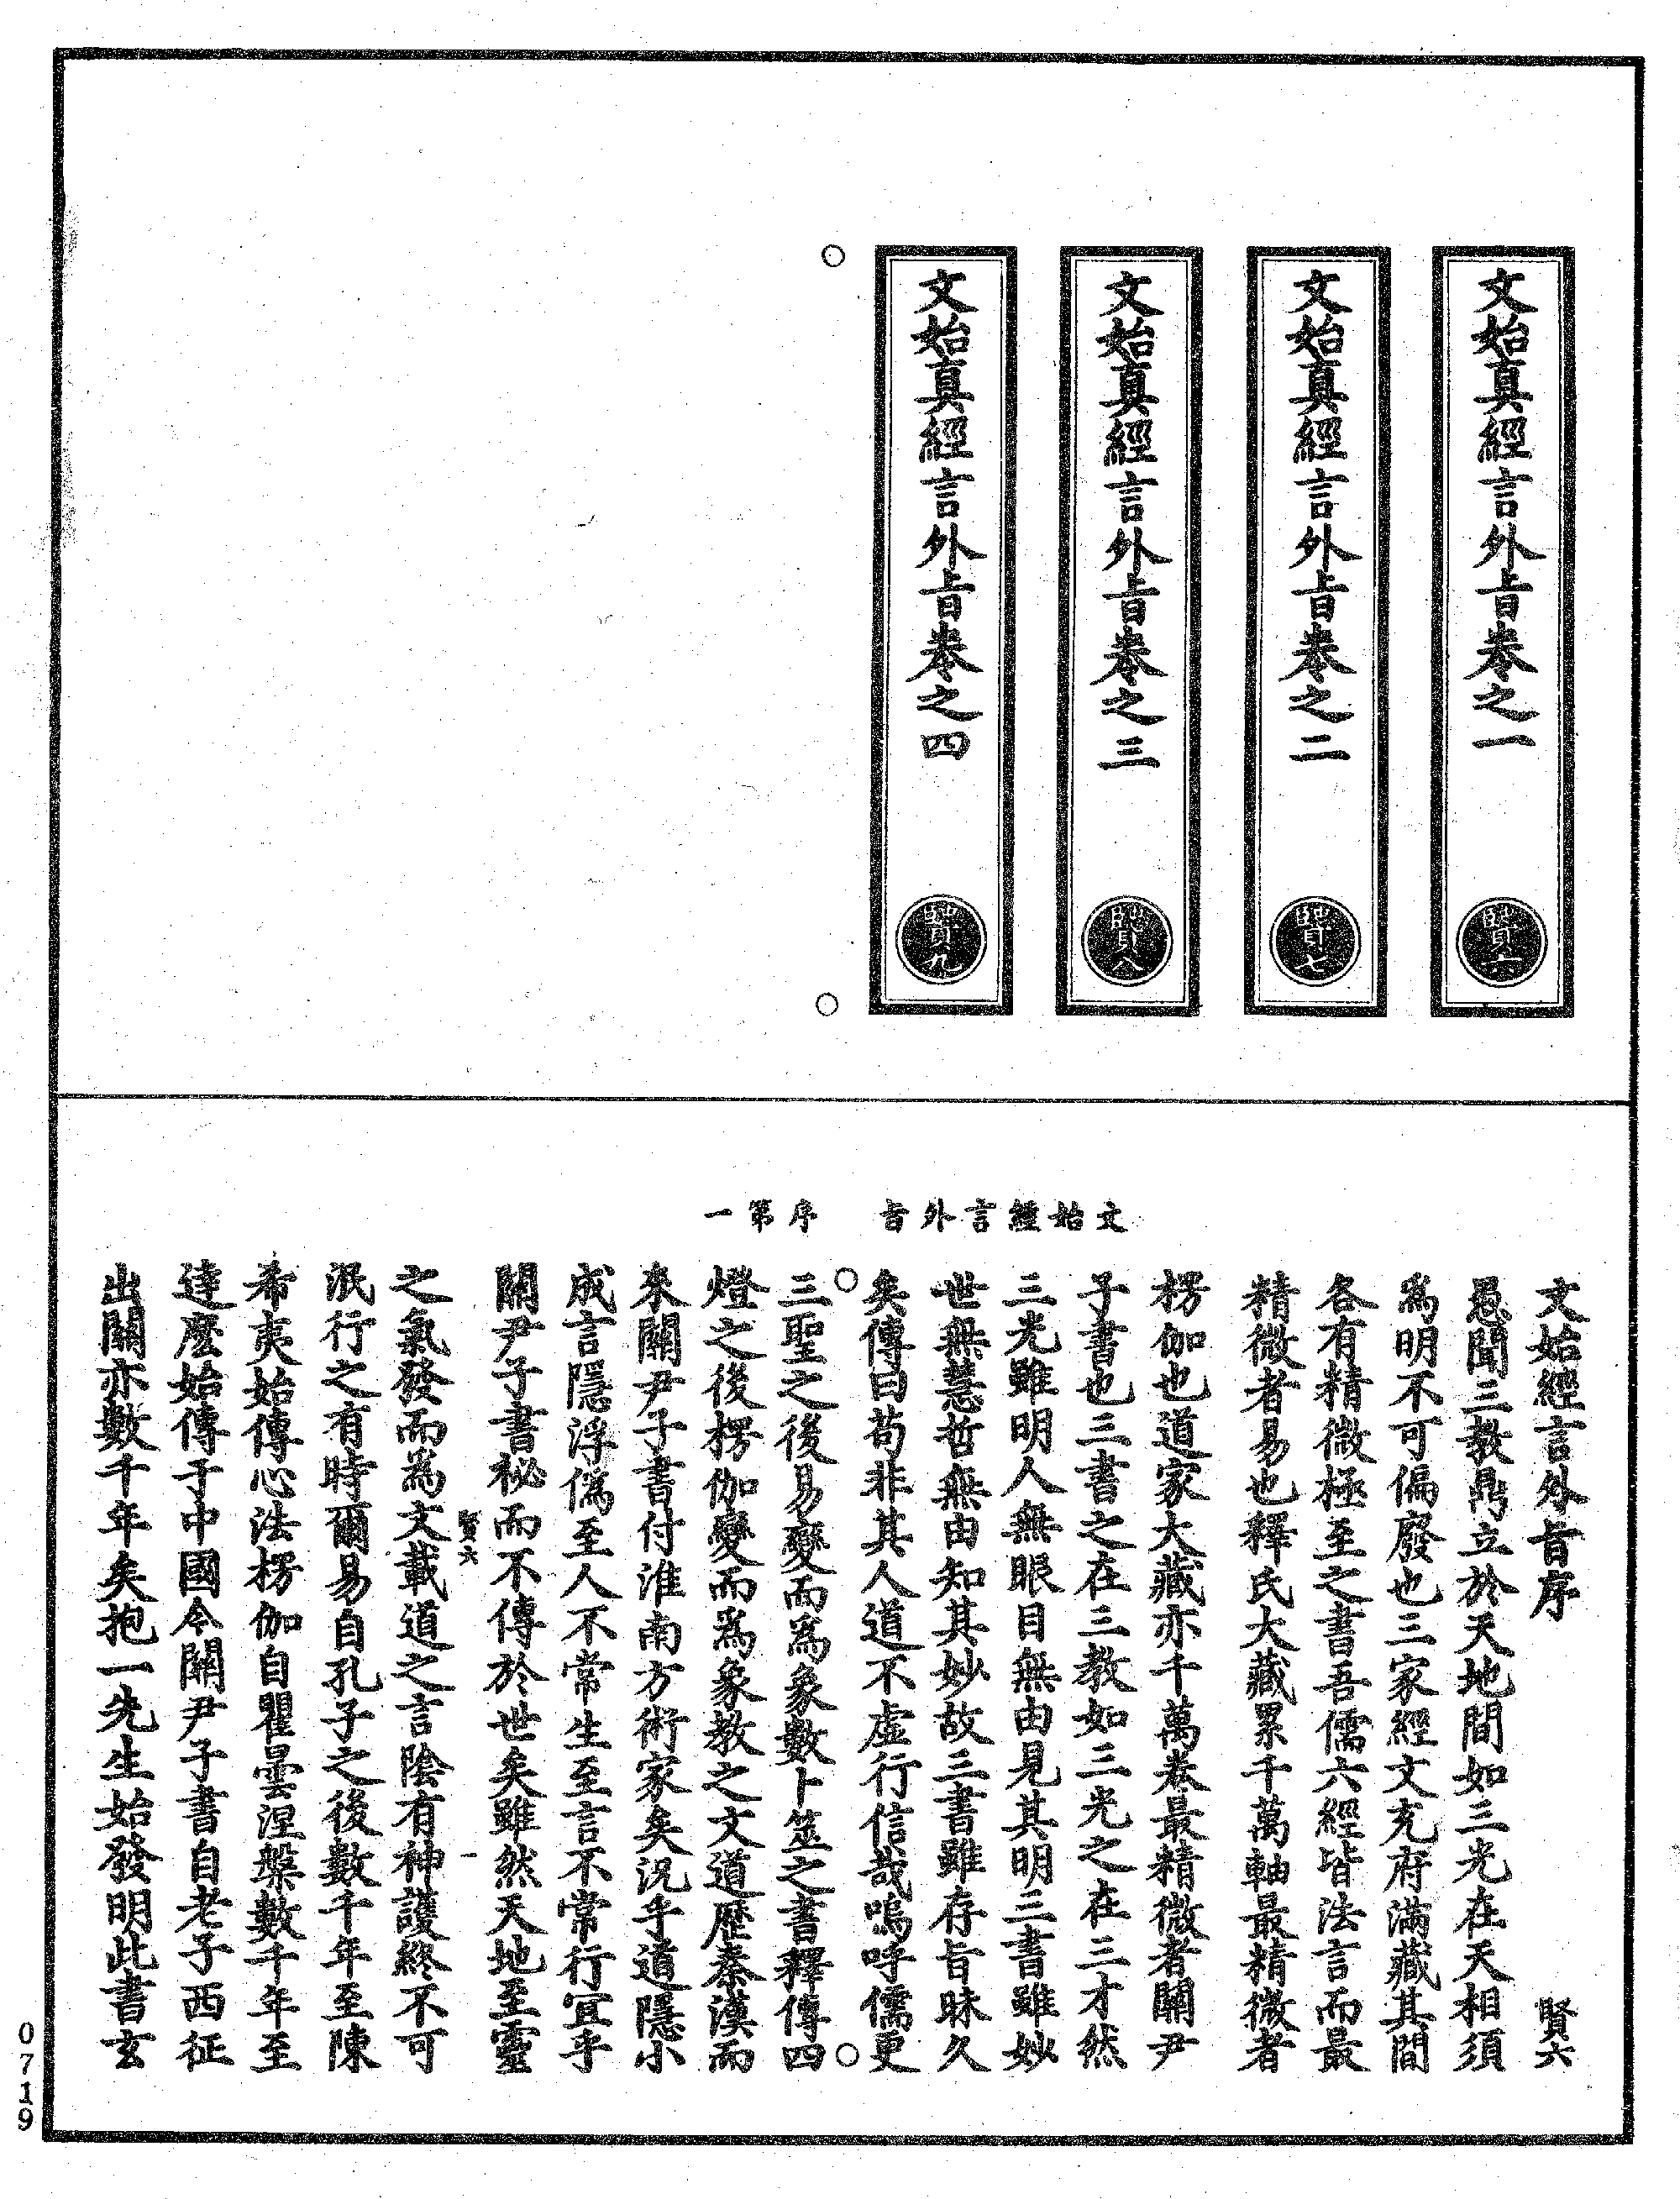 文始真經言外旨卷之一
賢六
文始真經言外旨卷之二
賢七
文始真經言外旨卷之三
賢八
文始真經言外旨卷之四
賢九
文始經言外旨　序第一
文始經言外旨序　賢六
愚聞三教鼎立於天地間如三光在天相須
爲明不可偏廢也三家經文充府滿藏其間
各有精微極至之書吾儒六經皆法言而最
精微者易也釋氏大藏累千萬軸最精微者
楞伽也道家大藏亦千萬卷最精微者關尹
子書也三書之在三教如三光之在三才然
三光雖明人無眼目無由見其明三書雖妙
世無慧哲無由知其妙故三書雖存旨昧久
矣傳曰苟非其人道不虛行信哉嗚呼儒更
三聖之後易變而爲象數卜筮之書釋傳四
燈之後楞伽變而爲象教之文道歷秦漢而
來關尹子書付淮南方術家矣況乎道隱小
成言隱浮僞至人不常生至言不常行宜乎
關尹子書祕而不傳於世矣雖然天地至靈
賢六　一
之氣發而爲文載道之言陰有神護終不可
泯行之有時爾易自孔子之後數千年至陳
希夷始傳心法楞伽自瞿曇涅槃數千年至
達麼始傳于中國令關尹子書自老子西征
出關亦數千年矣抱一先生始發明此書玄
0719